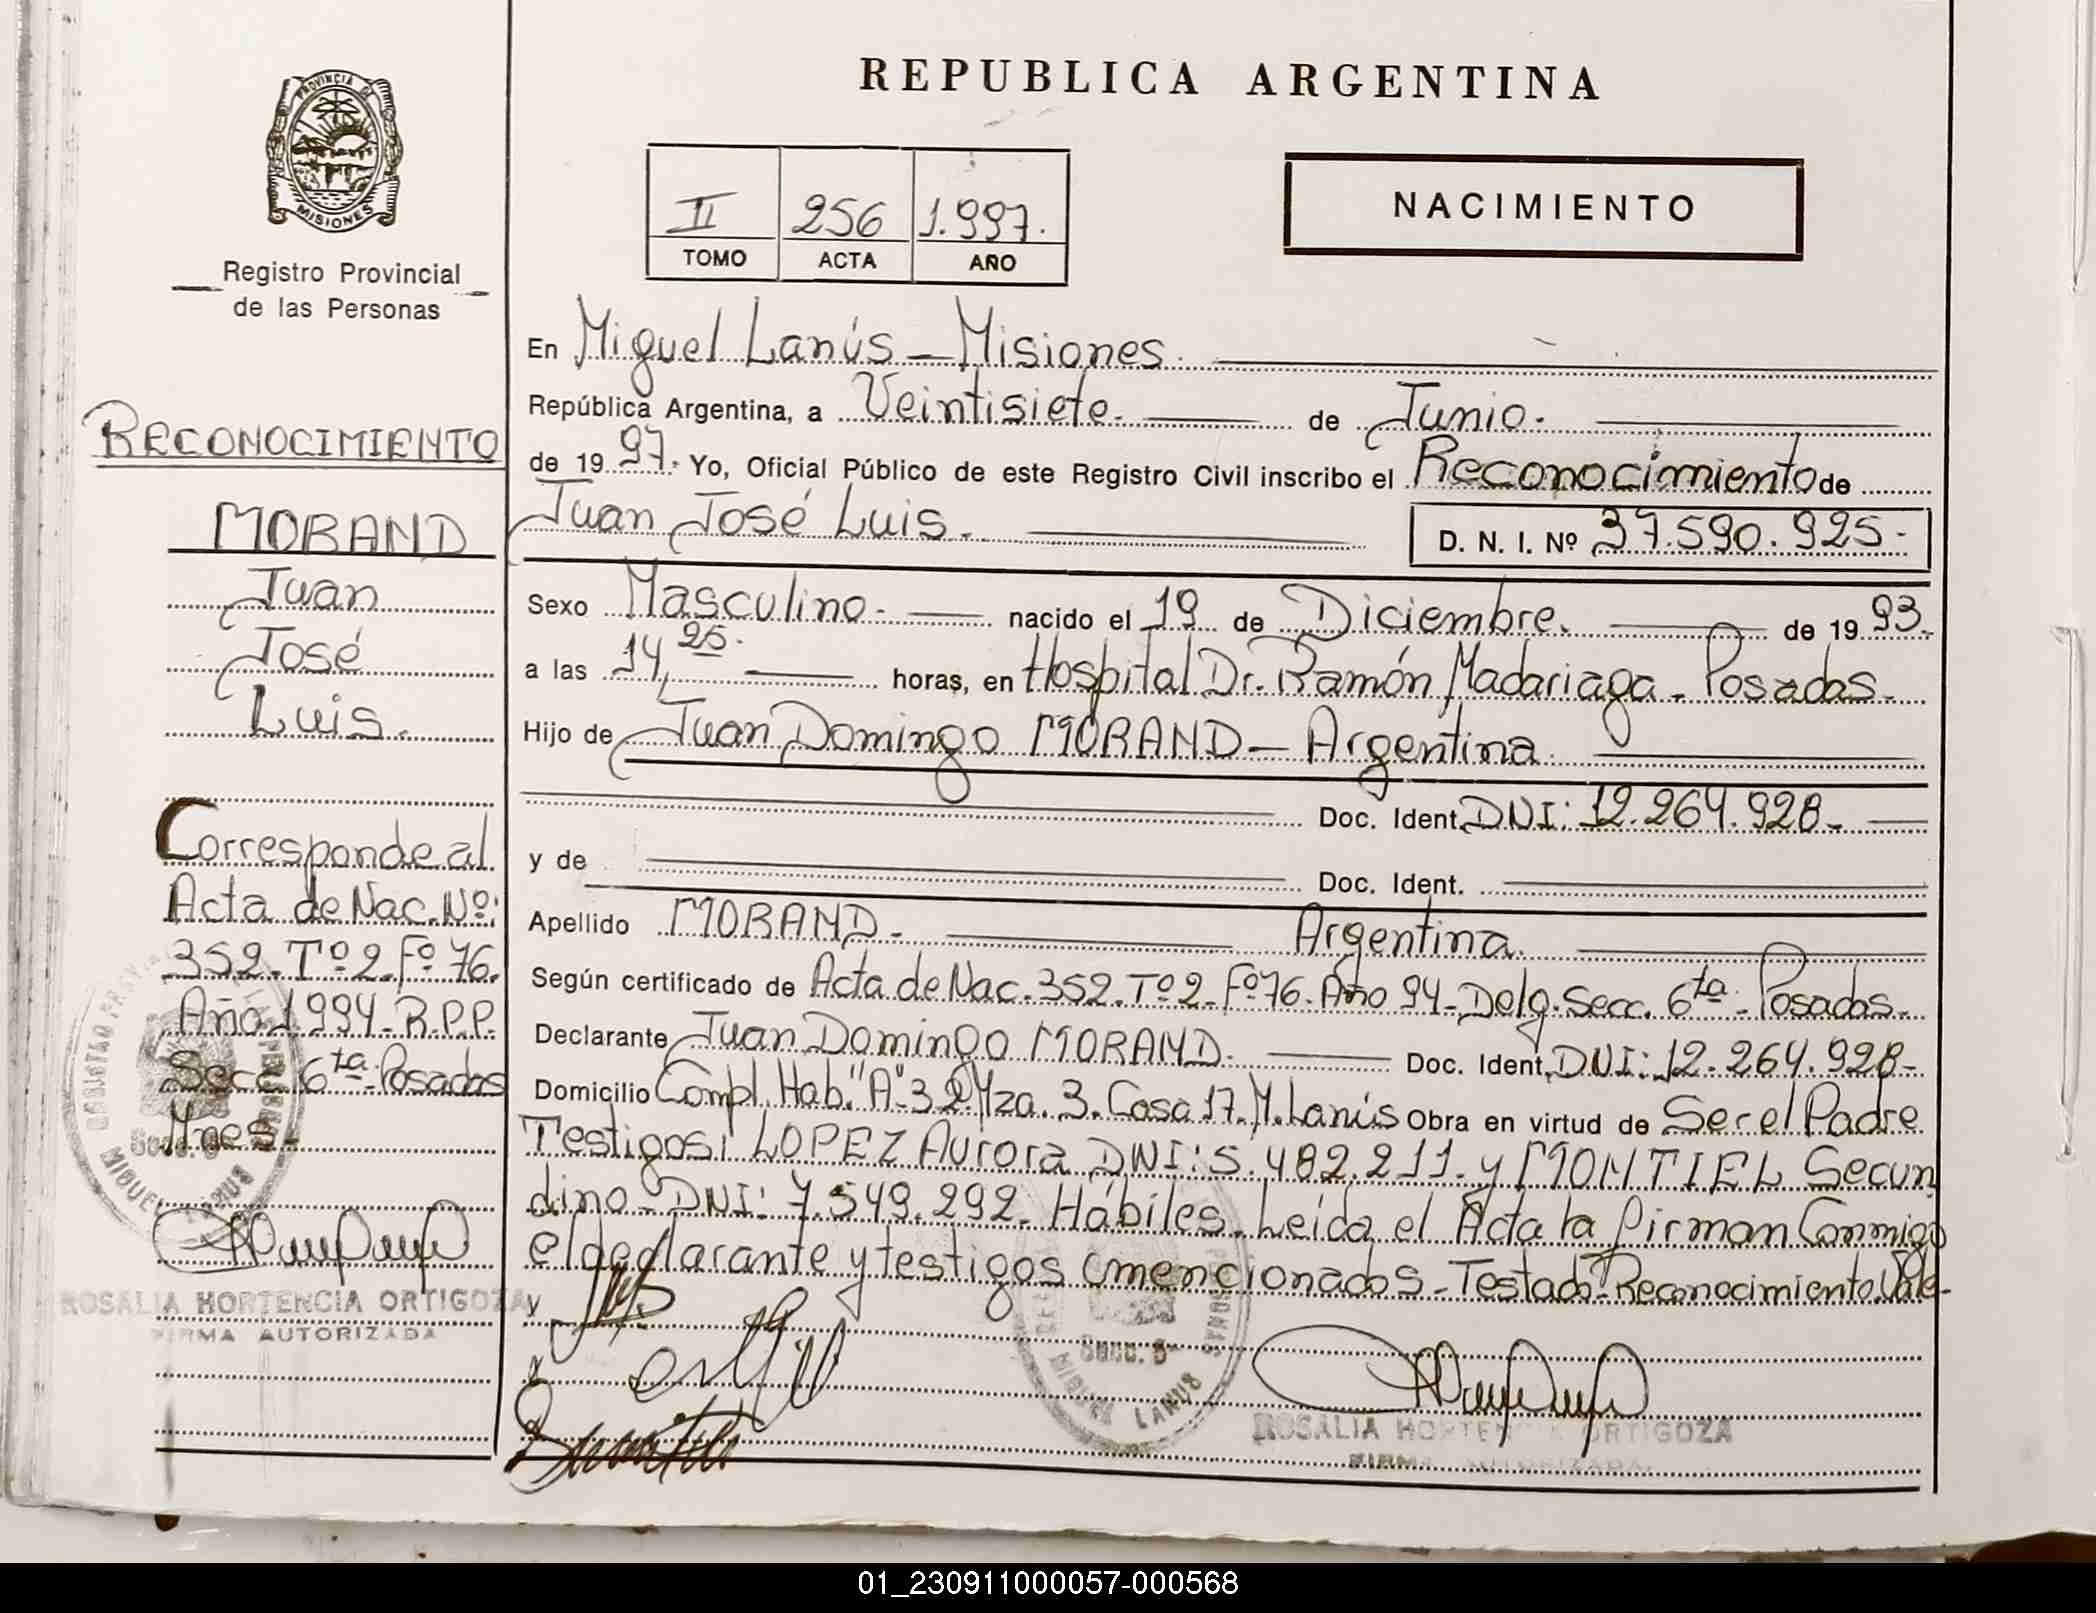 REPUBLICA ARGENTINA
PROVINCIA DE
MISIONES
Registro Provincial
de las Personas
II 256 1.997.
TOMO ACTA AÑO
NACIMIENTO
RECONOCIMIENTO
MORAND
Juan
José
Luis.
Corresponde al
Acta de Nac. Nº:
352. Tº 2. Fº 76.
Año 1994. R.P.P.
Secc. 6ta. Posadas
Mnes.
ROSALIA HORTENCIA ORTIGOZA
FIRMA AUTORIZADA
En Miguel Lanús - Misiones.
República Argentina, a Veintisiete. de Junio.
de 19 97. Yo, Oficial Público de este Registro Civil inscribo el Reconocimiento de
Juan José Luis. D. N. I. Nº 37.590.925-
Sexo Masculino. nacido el 19 de Diciembre. de 19 93.
a las 14,25. horas, en Hospital Dr. Ramón Madariaga - Posadas.
Hijo de Juan Domingo MORAND - Argentina.
Doc. Ident. DNI: 12.264.928.
y de Doc. Ident.
Apellido MORAND. Argentina.
Según certificado de Acta de Nac. 352. Tº 2. Fº 76. Año 94 - Delg. Secc. 6ta. Posadas.
Declarante Juan Domingo MORAND. Doc. Ident. DNI: 12.264.928-
Domicilio Compl. Hab. "A" 32 Mza. 3. Casa 17. M. Lanús Obra en virtud de Ser el Padre
Testigos: LOPEZ Aurora DNI: 5.482.211. y MONTIEL Secun
dino - DNI: 7.549.292. Hábiles. Leída el Acta la firman Conmigo
el declarante y testigos mencionados - Testado: Reconocimiento. Vale-
y
Secc. 6
MIGUEL LANUS
ROSALIA HORTENCIA ORTIGOZA
FIRMA AUTORIZADA
01_230911000057-000568